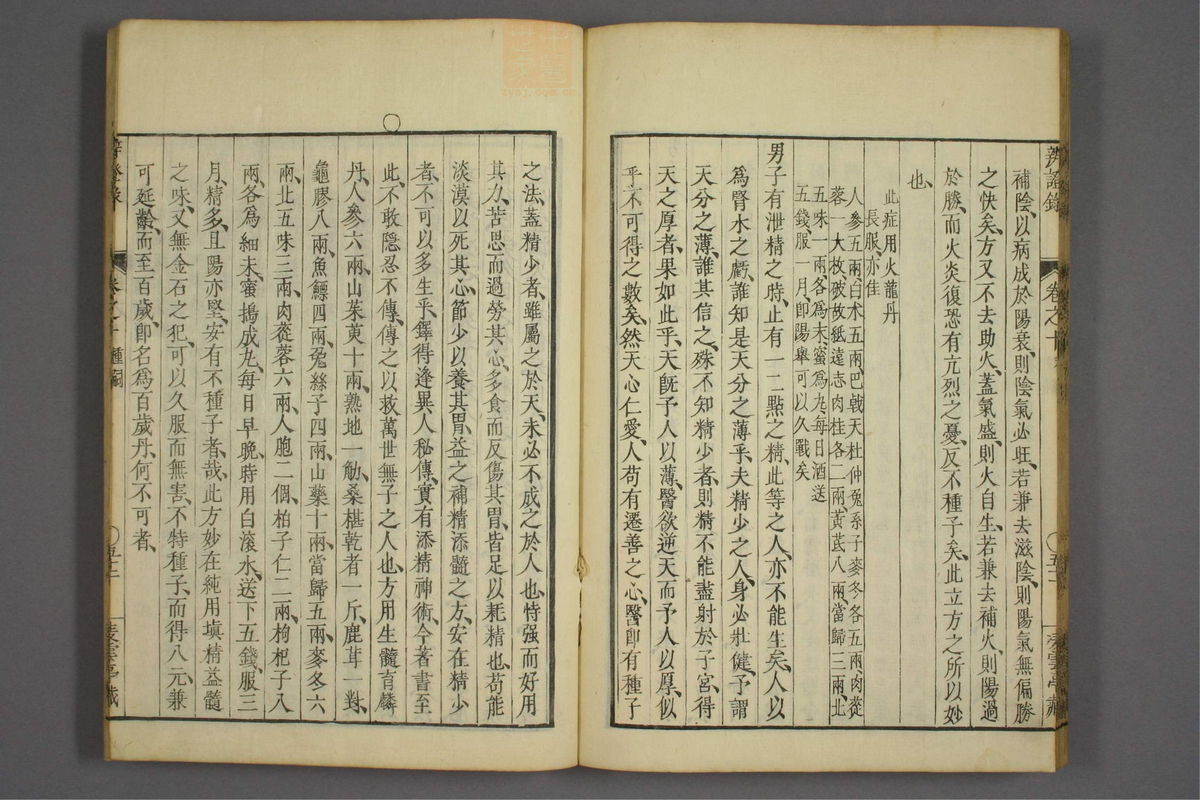 辨證錄 卷之十 五十一 凌雲亭藏
補陰以病成於陽衰則陰氣必旺若兼去滋陰則陽氣無偏勝
之快矣方又不去助火蓋氣盛則火自生若兼去補火則陽過
於勝而火炎復恐有亢烈之憂反不種子矣此立方之所以妙
也
此症用火龍丹
長服亦佳
人參五兩白朮五兩巴戟天杜仲兔系子麥冬各五兩肉蓯
蓉一大枚破故紙遠志肉桂各二兩黃芪八兩當歸三兩北
五味一兩各為末蜜為丸每日酒送
五錢服一月即陽舉可以久戰矣
男子有泄精之時止有一二點之精此等之人亦不能生矣人以
為腎水之虧誰知是天分之薄乎夫精少之人身必壯健予謂
天分之薄誰其信之殊不知精少者則精不能盡射於子宮得
天之厚者果如此乎天既予人以薄醫欲逆天而予人以厚似
乎不可得之數矣然天心仁愛人苟有遷善之心醫即有種子
之法蓋精少者雖屬之於天未必不成之於人也恃强而好用
其力苦思而過勞其心多食而反傷其胃皆足以耗精也苟能
淡漠以死其心節少以養其胃益之補精添髓之方安在精少
者不可以多生乎鐸得逢異人秘傳實有添精神術今著書至
此不敢隱忍不傳傳之以救萬世無子之人也方用生髓育麟
丹人參六兩山茱萸十兩熟地一觔桑椹乾者一斤鹿茸一對
龜膠八兩魚鰾四兩兔絲子四兩山藥十兩當歸五兩麥冬六
兩北五味三兩肉蓯蓉六兩人胞二個柏子仁二兩枸杞子八
兩各為細末蜜搗成丸每日早晚時用白滾水送下五錢服三
月精多且陽亦堅安有不種子者哉此方妙在純用填精益髓
之味又無金石之犯可以久服而無害不特種子而得八元兼
可延齡而至百歲即名為百歲丹何不可者
卷之十 種嗣 五十二 凌雲亭藏